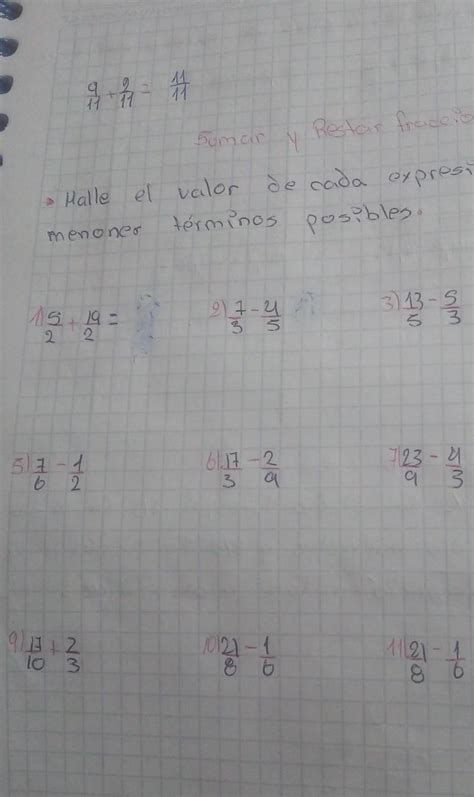 9/11 + 2/11 = 11/11
Sumar y Restar
• Halle el valor de cada
menoner términos posibles.
1) 5/2 + 19/2 =
2) 7/3 - 4/5
3) 13/5 - 5/3
5) 7/6 - 1/2
6) 17/3 - 2/9
7) 23/9 - 4/3
9) 17/10 + 2/3
10) 21/8 - 1/6
11) 21/8 - 1/6